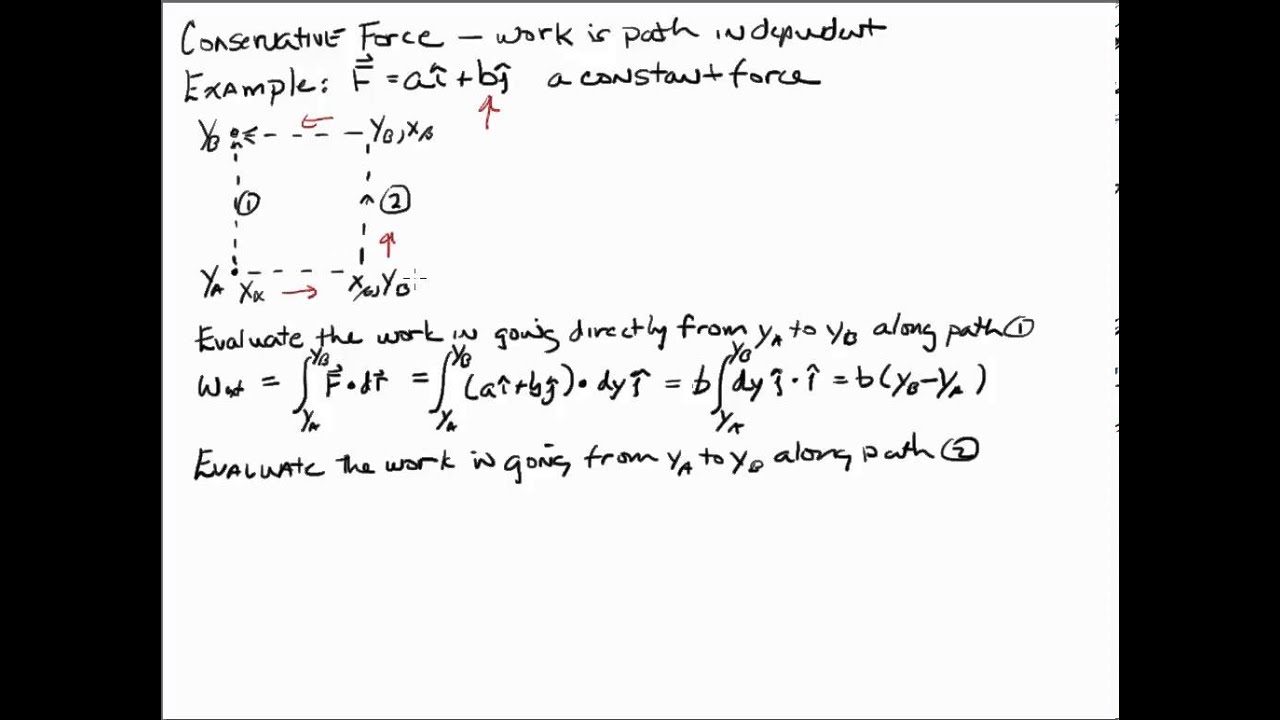 Conservative Force – work is path independent
Example: F⃗ = aî + bĵ a constant force
y_B y_B, x_B
① ②
y_A x_A x_B, y_B
Evaluate the work in going directly from y_A to y_B along path ①
W_ext = ∫_{y_A}^{y_B} F⃗ · dr⃗ = ∫_{y_A}^{y_B} (aî + bĵ) · dy ĵ = b ∫_{y_A}^{y_B} dy ĵ · ĵ = b(y_B – y_A)
Evaluate the work in going from y_A to y_B along path ②